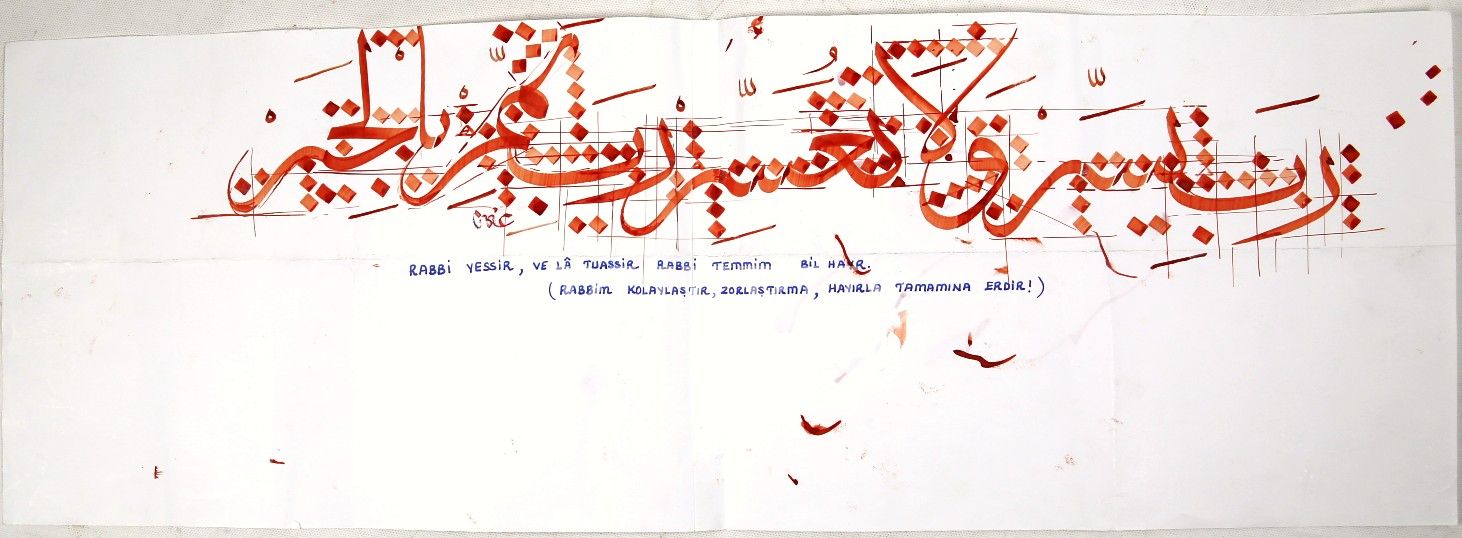 رَبِّ يَسِّرْ وَلَا تُعَسِّرْ رَبِّ تَمِّمْ بِالْخَيْرِ
RABBİ YESSİR, VE LÂ TUASSİR RABBİ TEMMİM BİL HAYR.
(RABBİM KOLAYLAŞTIR, ZORLAŞTIRMA, HAYIRLA TAMAMINA ERDİR!)